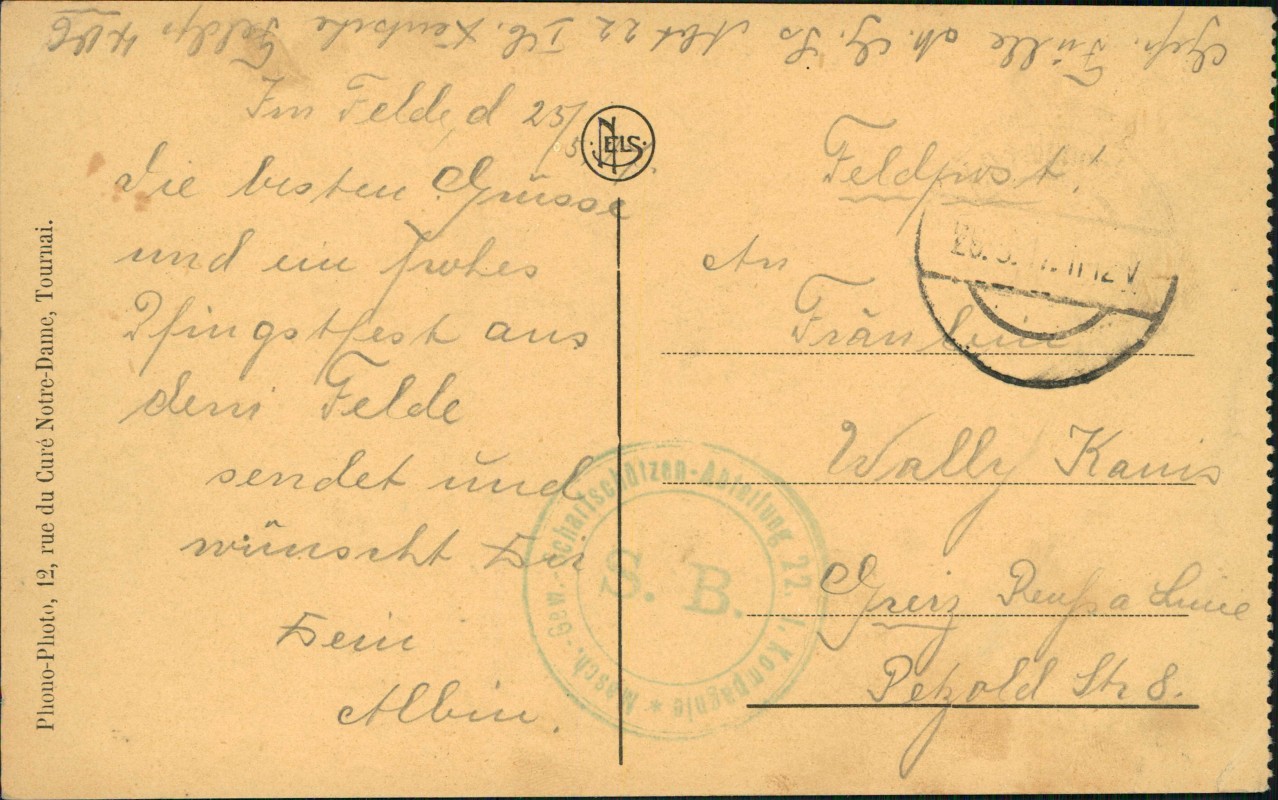 Gefr. Fülle M. G. Ss Abt 22 I K. Deutsche Feldp
Im Felde, d 25/5. 17.
NELS
Die besten Grüsse
und ein frohes
Pfingstfest aus
dem Felde
sendet und
wünscht Dir
Dein
Albin.
Feldpost!
An
Fräulein
Wally Kanis
Greiz Reuß a Linie
Petzold Str 8.
26.5.17. 11-12 V.
Masch.-Gew.-Scharfschützen-Abteilung 22. 1. Kompagnie *
S. B.
Phono-Photo, 12, rue du Curé Notre-Dame, Tournai.